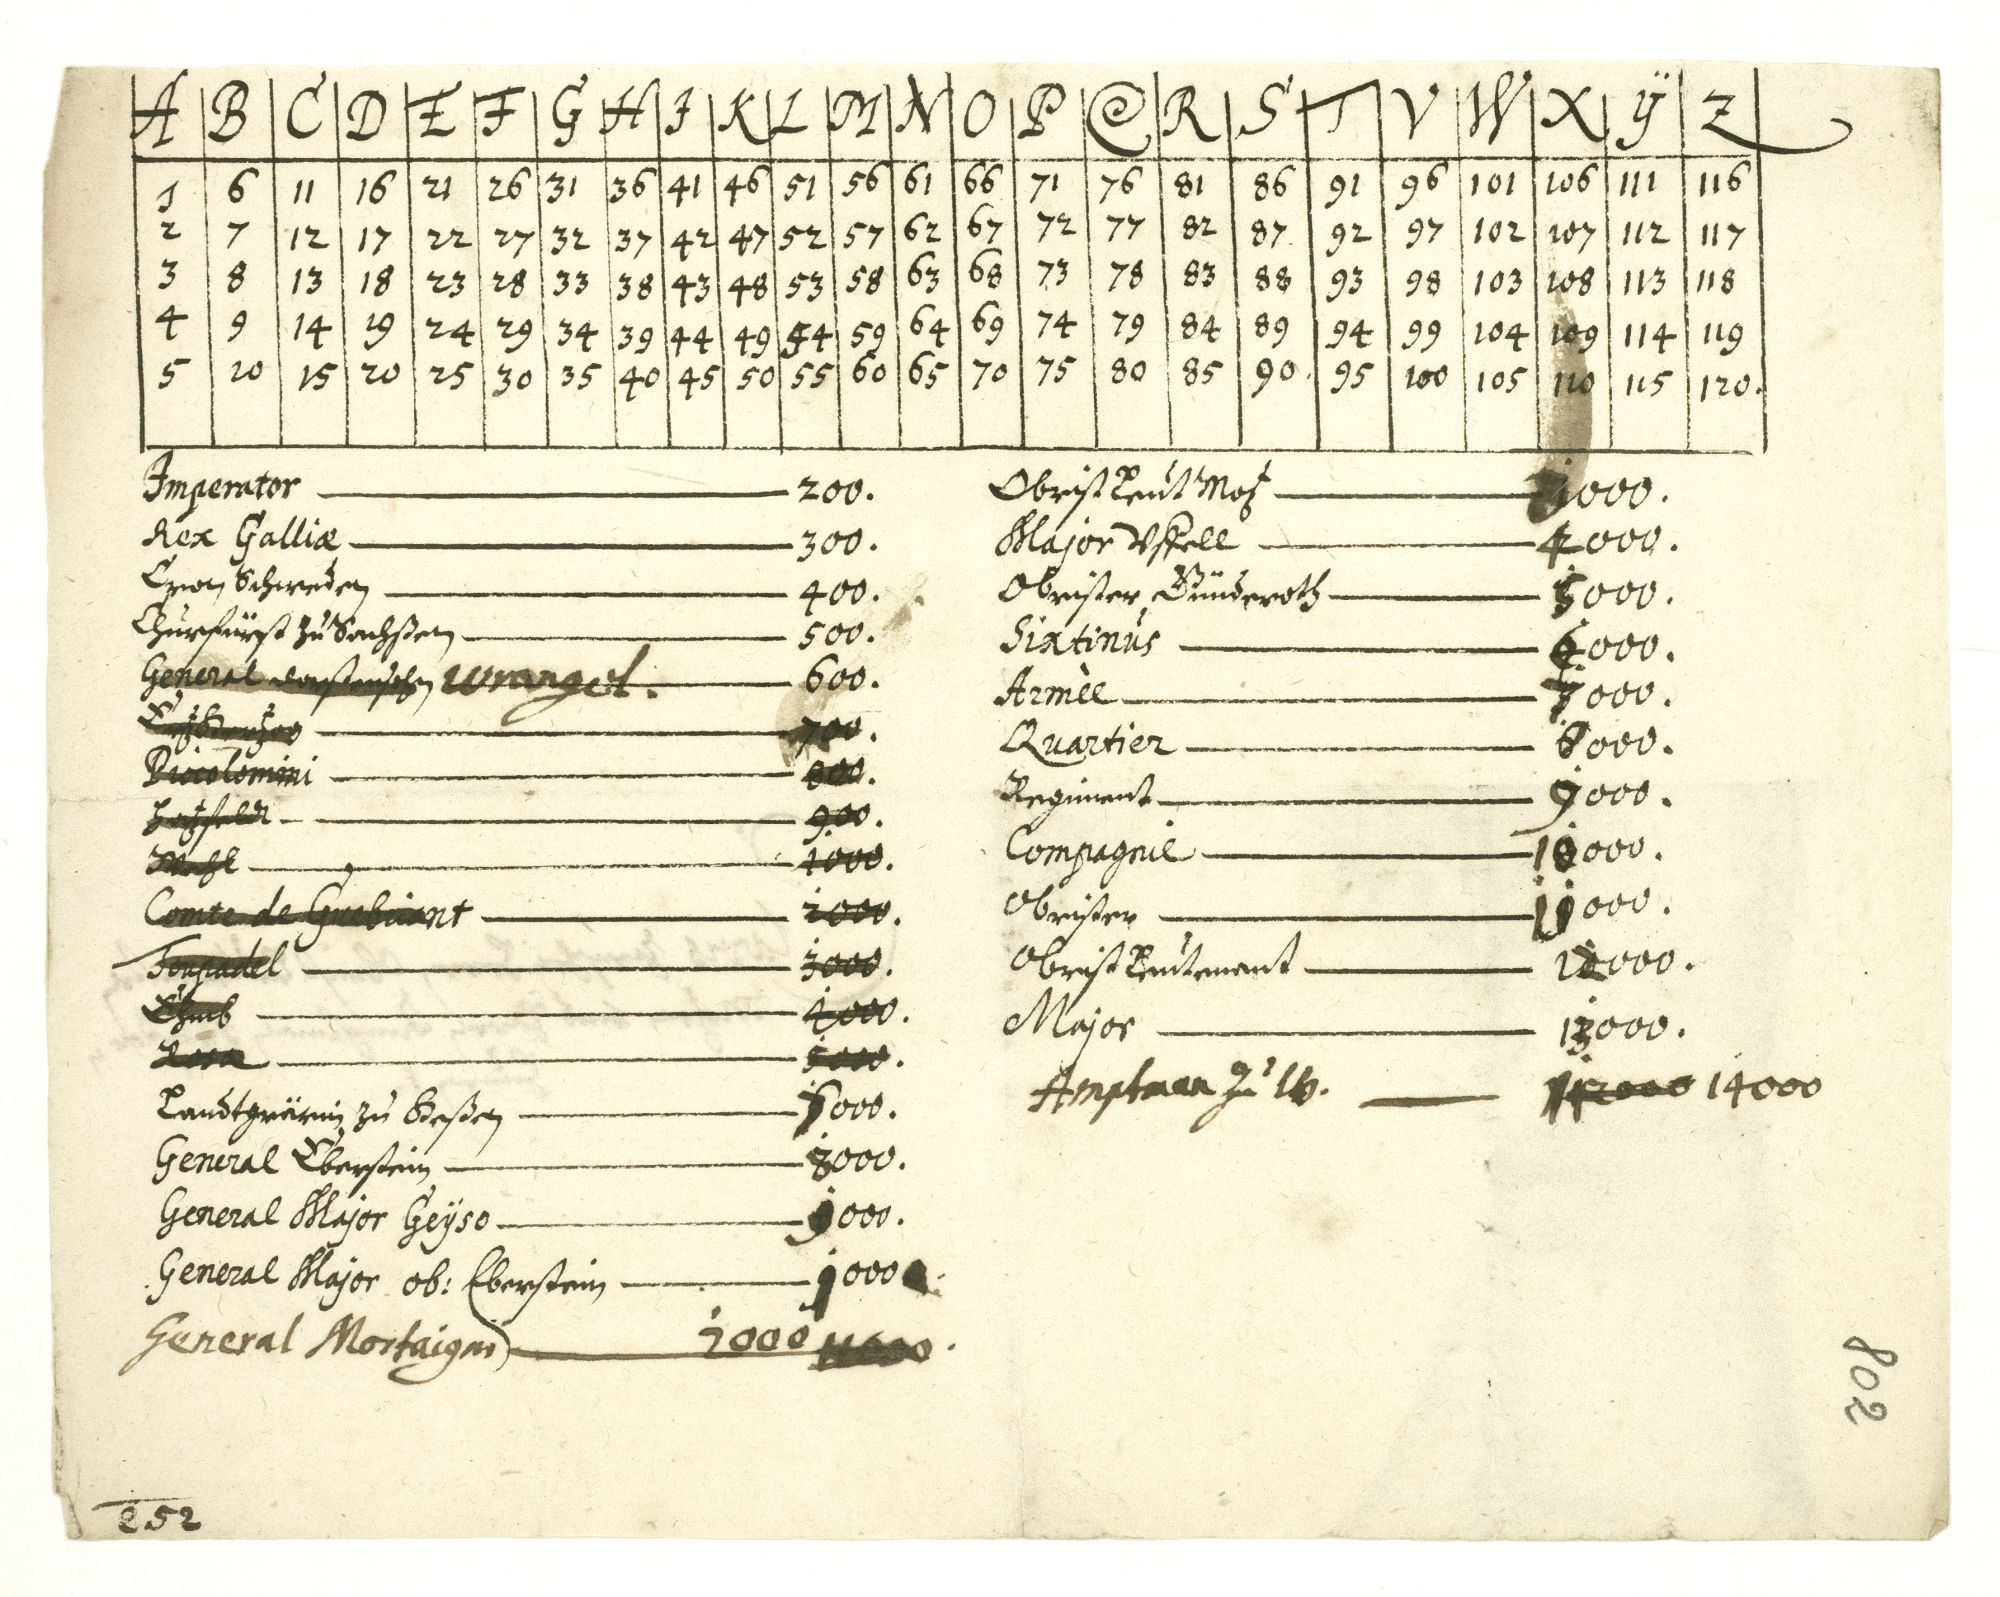 A B C D E F G H I K L M N O P Q R S T V W X Ÿ Z
1 6 11 16 21 26 31 36 41 46 51 56 61 66 71 76 81 86 91 96 101 106 111 116
2 7 12 17 22 27 32 37 42 47 52 57 62 67 72 77 82 87 92 97 102 107 112 117
3 8 13 18 23 28 33 38 43 48 53 58 63 68 73 78 83 88 93 98 103 108 113 118
4 9 14 19 24 29 34 39 44 49 54 59 64 69 74 79 84 89 94 99 104 109 114 119
5 10 15 20 25 30 35 40 45 50 55 60 65 70 75 80 85 90 95 100 105 110 115 120.
Imperator 200.
Rex Galliæ 300.
Cron Schweden 400.
Churfürst zu Sachßen 500.
General wrangel. 600.
700.
Piccolomini 800.
Hatzfeldt 900.
Wahl 1000.
Comte de Guebriant 2000.
Toupadel 3000.
4000.
Rosa 5000.
Landtgrävin zu Heßen 000.
General Eberstein 000.
General Major Geÿso 000.
General Major ob: Eberstein 1000
General Mortaigni 2000
Obrist Leut Motz 000.
Major Vffell 4000.
Obrister Günderoth 5000.
Sixtinus 6000.
Armèe 7000.
Quartier 8000.
Regiment 9000.
Compagnie 10000.
Obrister 11000.
Obrist Leutenant 12000.
Major 13000.
Amptman zu 14000
802
252